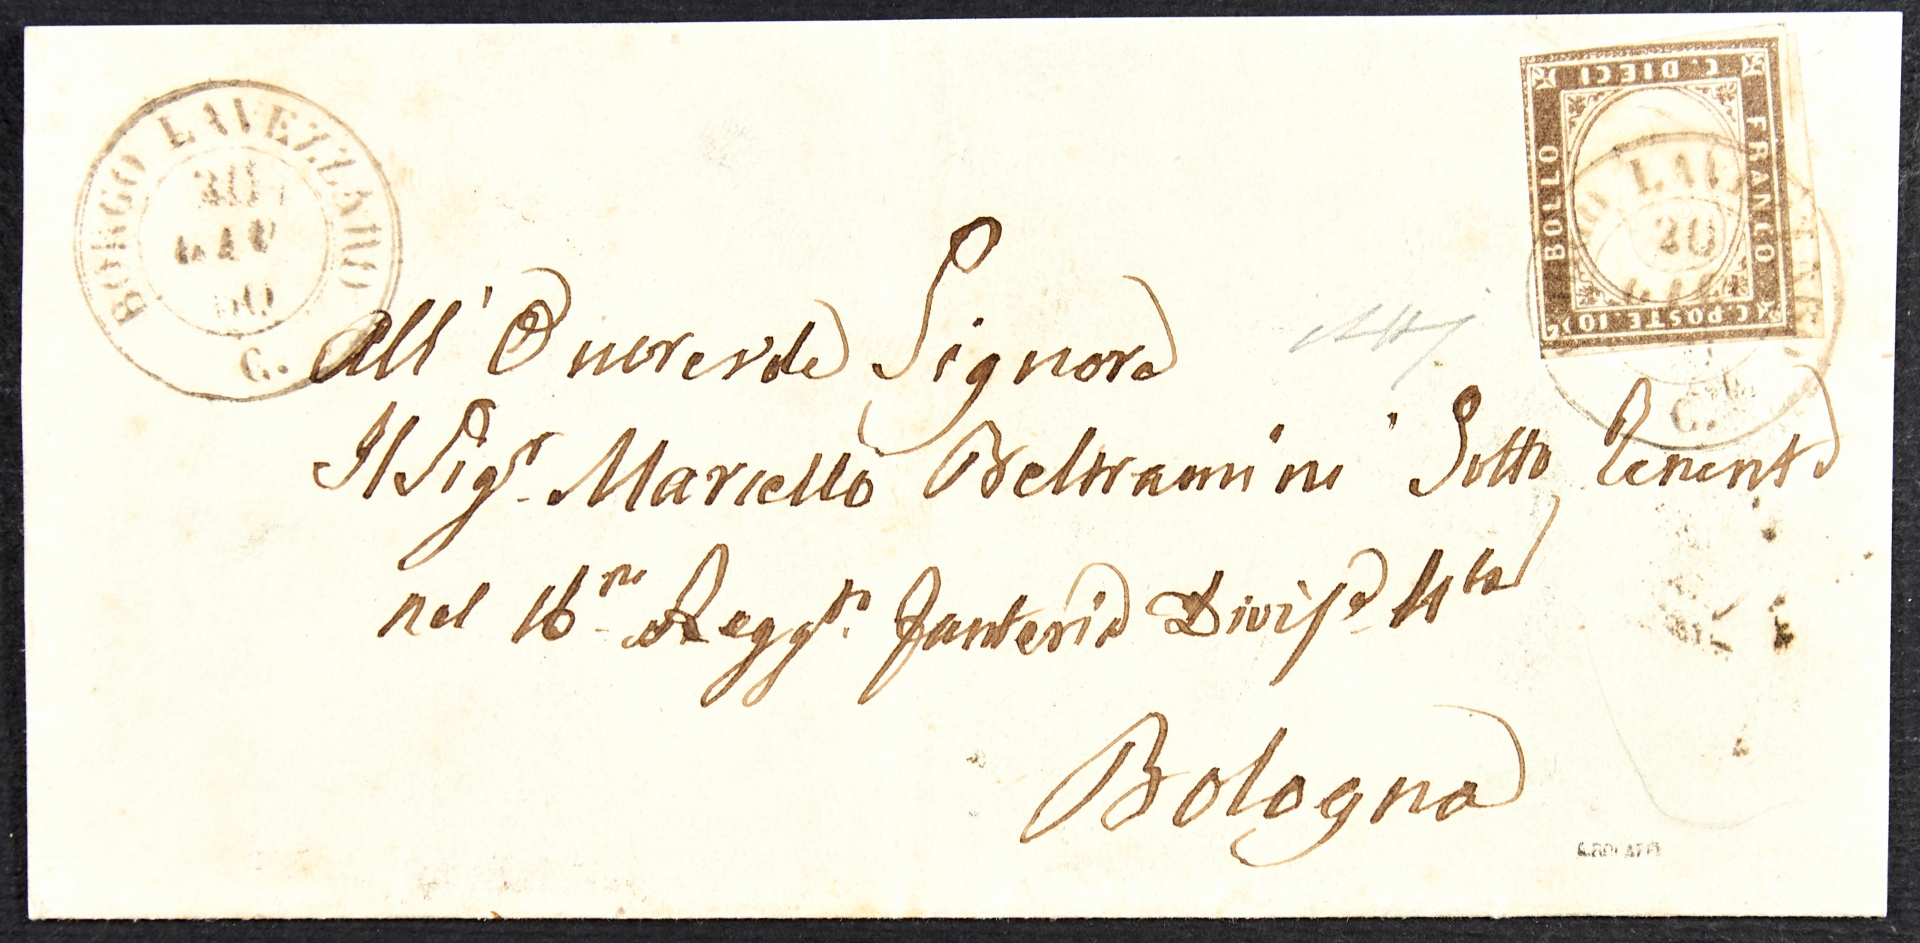 BORGO LAVEZZARO
20
MAG
60
C.
C. DIECI
BOLLO
FRANCO
C. POSTE. 10
20
MAG
C.
All' Onorevole Signore
Il Sigr. Marcello Beltramini Sotto Tenente
nel 16mo Reggto. Fanteria Divise 4ta
Bologna